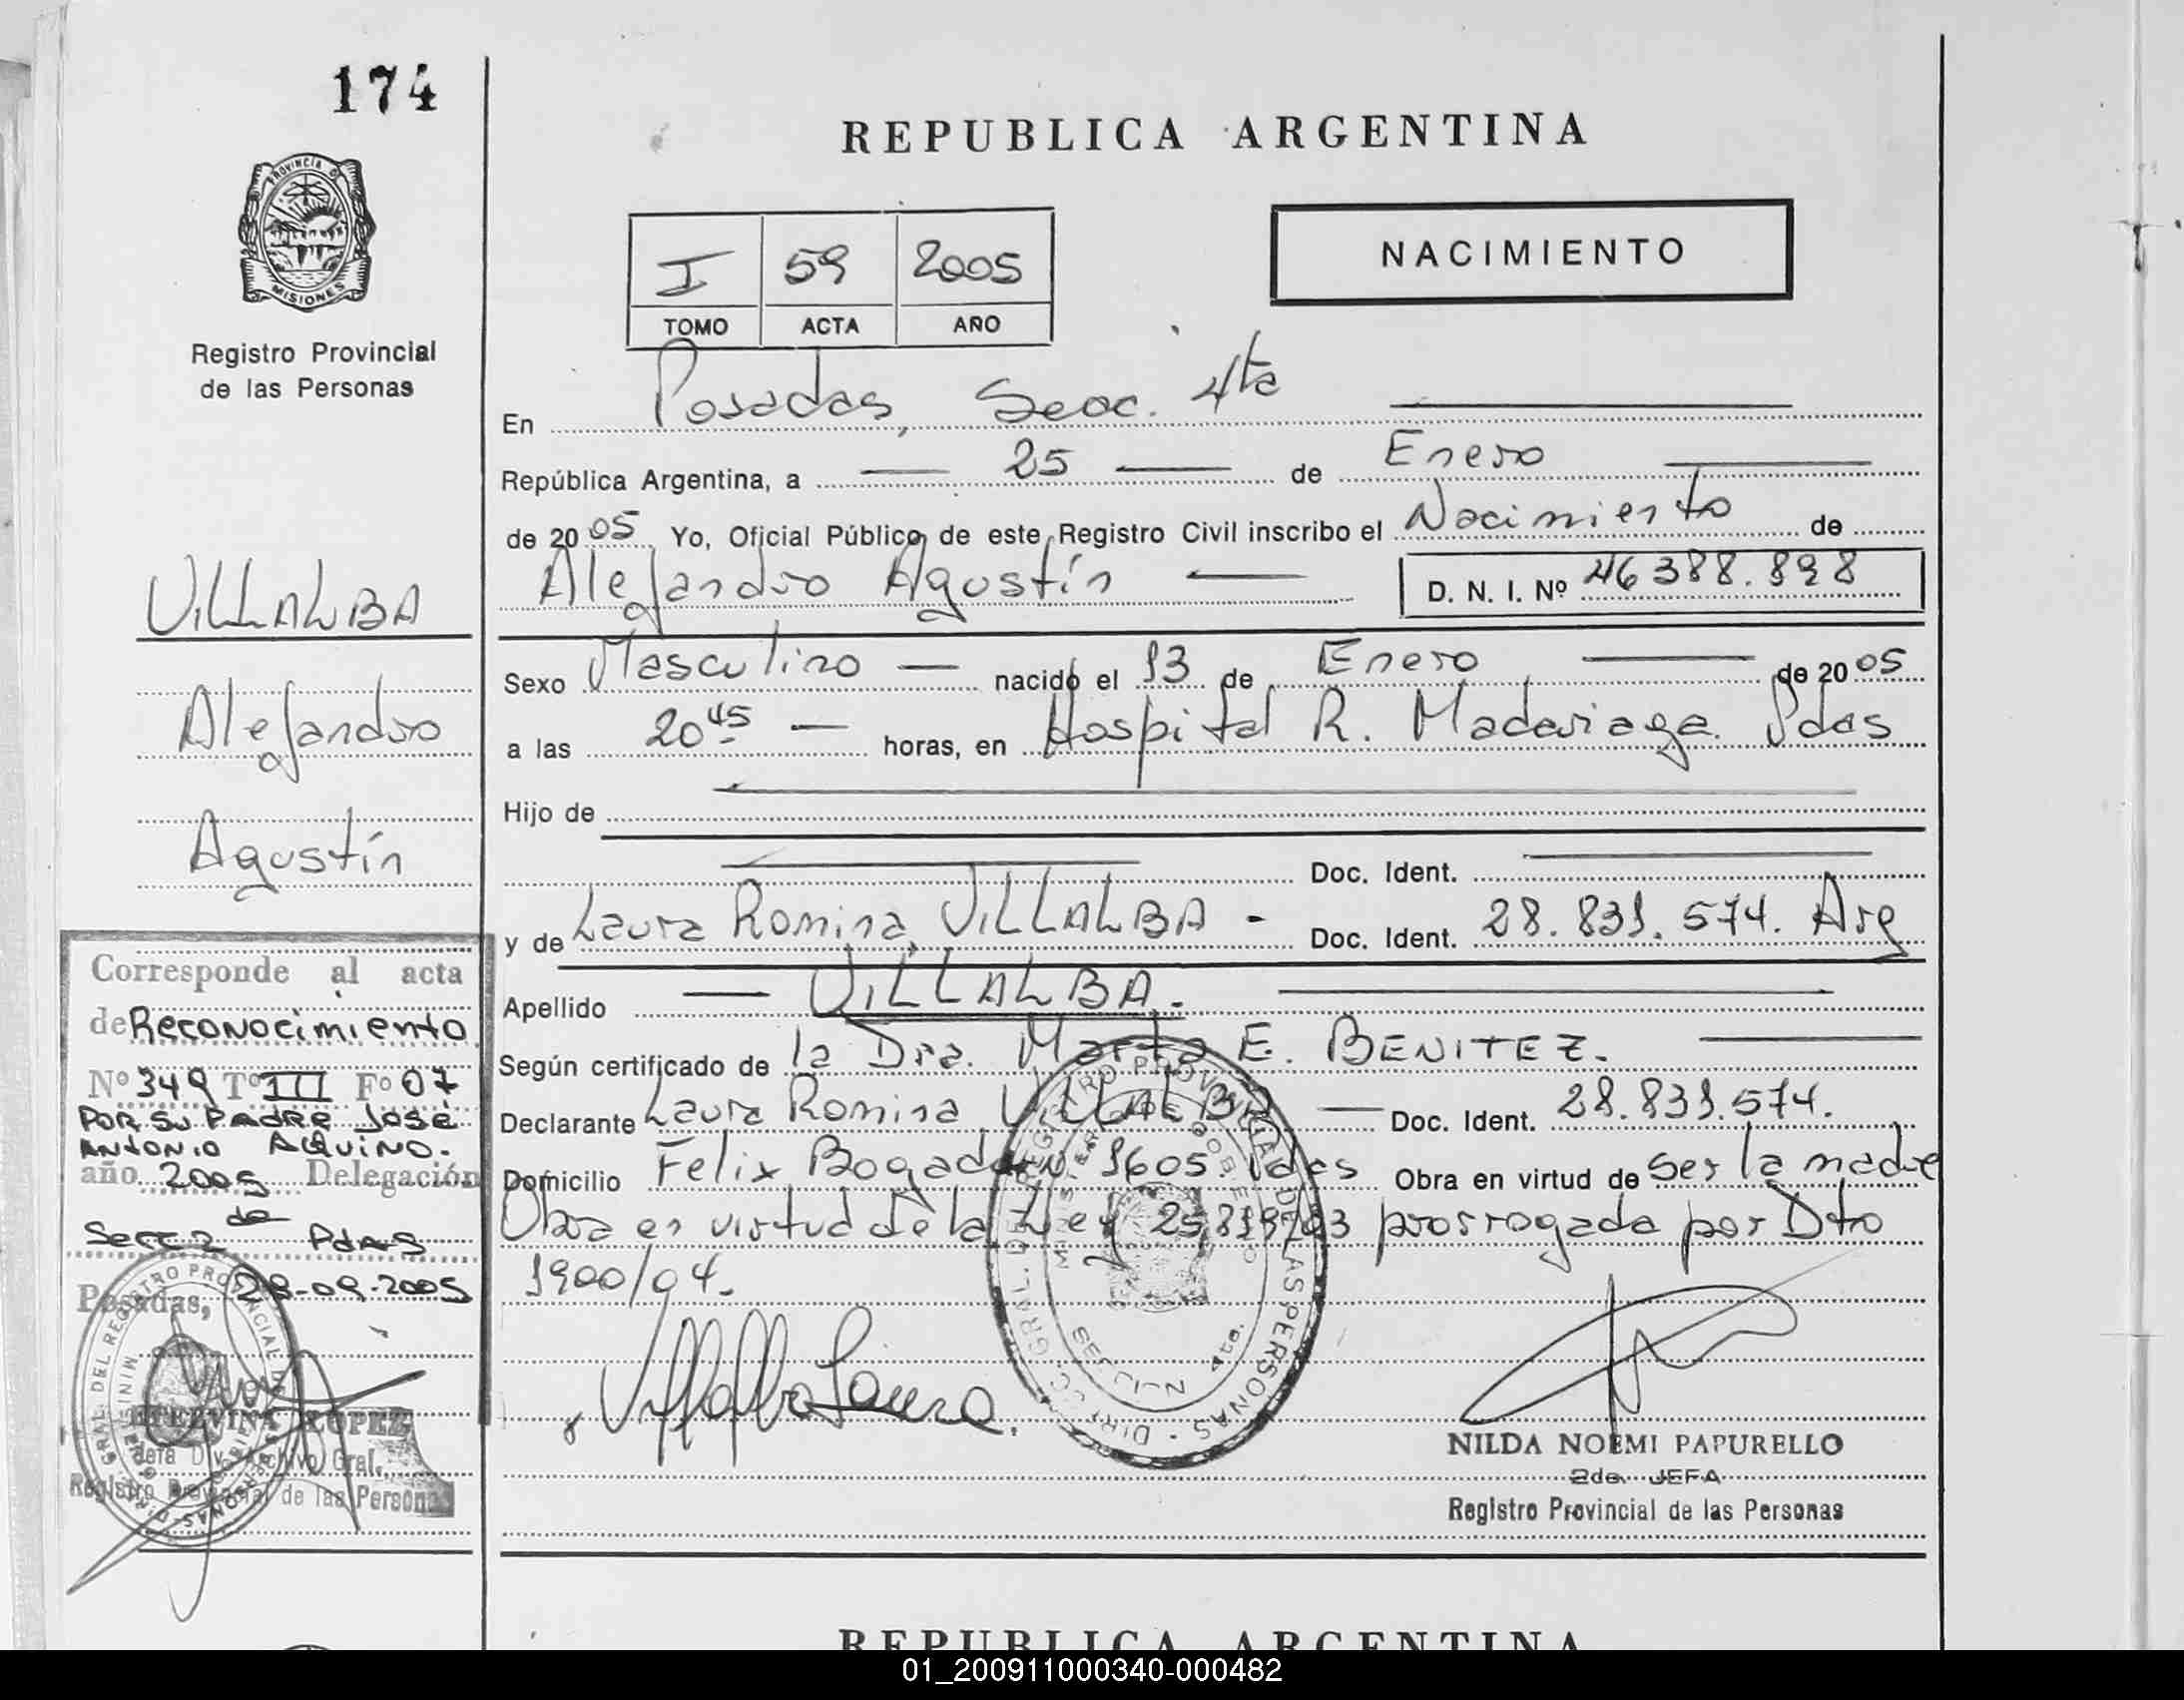 174
REPUBLICA ARGENTINA
PROVINCIA D
MISIONES
Registro Provincial
de las Personas
I 59 2005
TOMO ACTA AÑO
NACIMIENTO
En Posadas, Secc. 4ta
República Argentina, a 25 de Enero
de 2005 Yo, Oficial Público de este Registro Civil inscribo el Nacimiento de
Alejandro Agustín D. N. I. Nº 46388.898
Sexo Masculino nacido el 13 de Enero de 2005
a las 20 45 horas, en Hospital R. Madariaga Pdas
Hijo de
Doc. Ident.
y de Laura Romina VILLALBA - Doc. Ident. 28.831.574. Arg
Apellido VILLALBA.
Según certificado de la Dra. Marta E. BENITEZ.
Declarante Laura Romina VILLALBA Doc. Ident. 28.831.574.
Domicilio Felix Bogado Nº 1605 Pdas Obra en virtud de ser la madre
Obra en virtud de la Ley 25,819/03 prorrogada por Dto
1900/04.
Villalba Laura.
NILDA NOEMI PAPURELLO
2da. JEFA
Registro Provincial de las Personas
VILLALBA
Alejandro
Agustín
Corresponde al acta
de Reconocimiento
Nº 349 Tº III Fº 07
POR SU PADRE JOSÉ
ANTONIO AQUINO.
año 2005 Delegación
Secc 2da Pdas
Posadas, 28-09-2005
ETELVINA LOPEZ
Jefa Div. Archivo Gral.
Registro Provincial de las Personas
REPUBLICA ARGENTINA
01_200911000340-000482